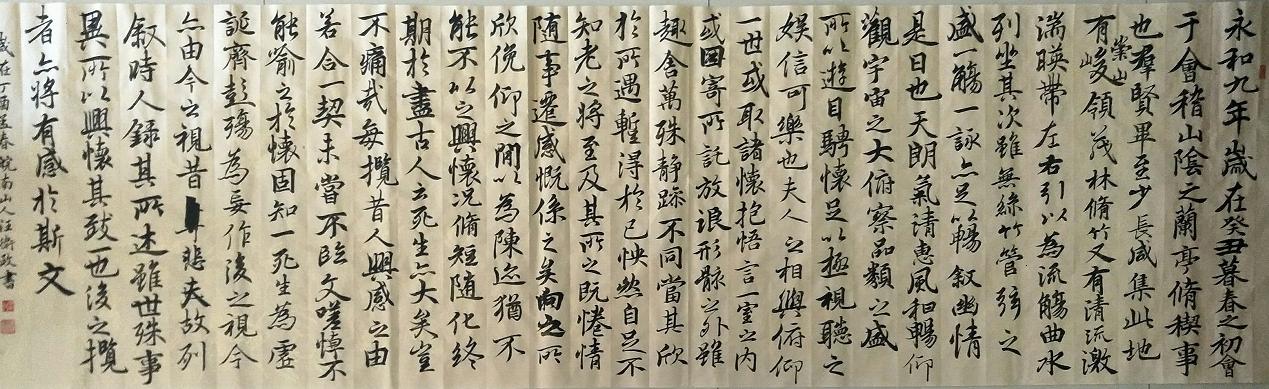 永和九年歲在癸丑暮春之初會
于會稽山陰之蘭亭脩稧事
也羣賢畢至少長咸集此地
有崇山峻領茂林脩竹又有清流激
湍暎帶左右引以為流觴曲水
列坐其次雖無絲竹管弦之
盛一觴一詠亦足以暢叙幽情
是日也天朗氣清惠風和暢仰
觀宇宙之大俯察品類之盛
所以遊目騁懷足以極視聽之
娛信可樂也夫人之相與俯仰
一世或取諸懷抱悟言一室之内
或因寄所託放浪形骸之外雖
趣舍萬殊静躁不同當其欣
於所遇暫得於己怏然自足不
知老之將至及其所之既惓情
隨事遷感慨係之矣向之所
欣俛仰之間以為陳迹猶不
能不以之興懷况脩短隨化終
期於盡古人云死生亦大矣豈
不痛哉每攬昔人興感之由
若合一契未嘗不臨文嗟悼不
能喻之於懷固知一死生為虛
誕齊彭殤為妄作後之視今
亦由今之視昔悲夫故列
叙時人録其所述雖世殊事
異所以興懷其致一也後之攬
者亦將有感於斯文
歲在丁酉孟春皖南山人汪衛政書